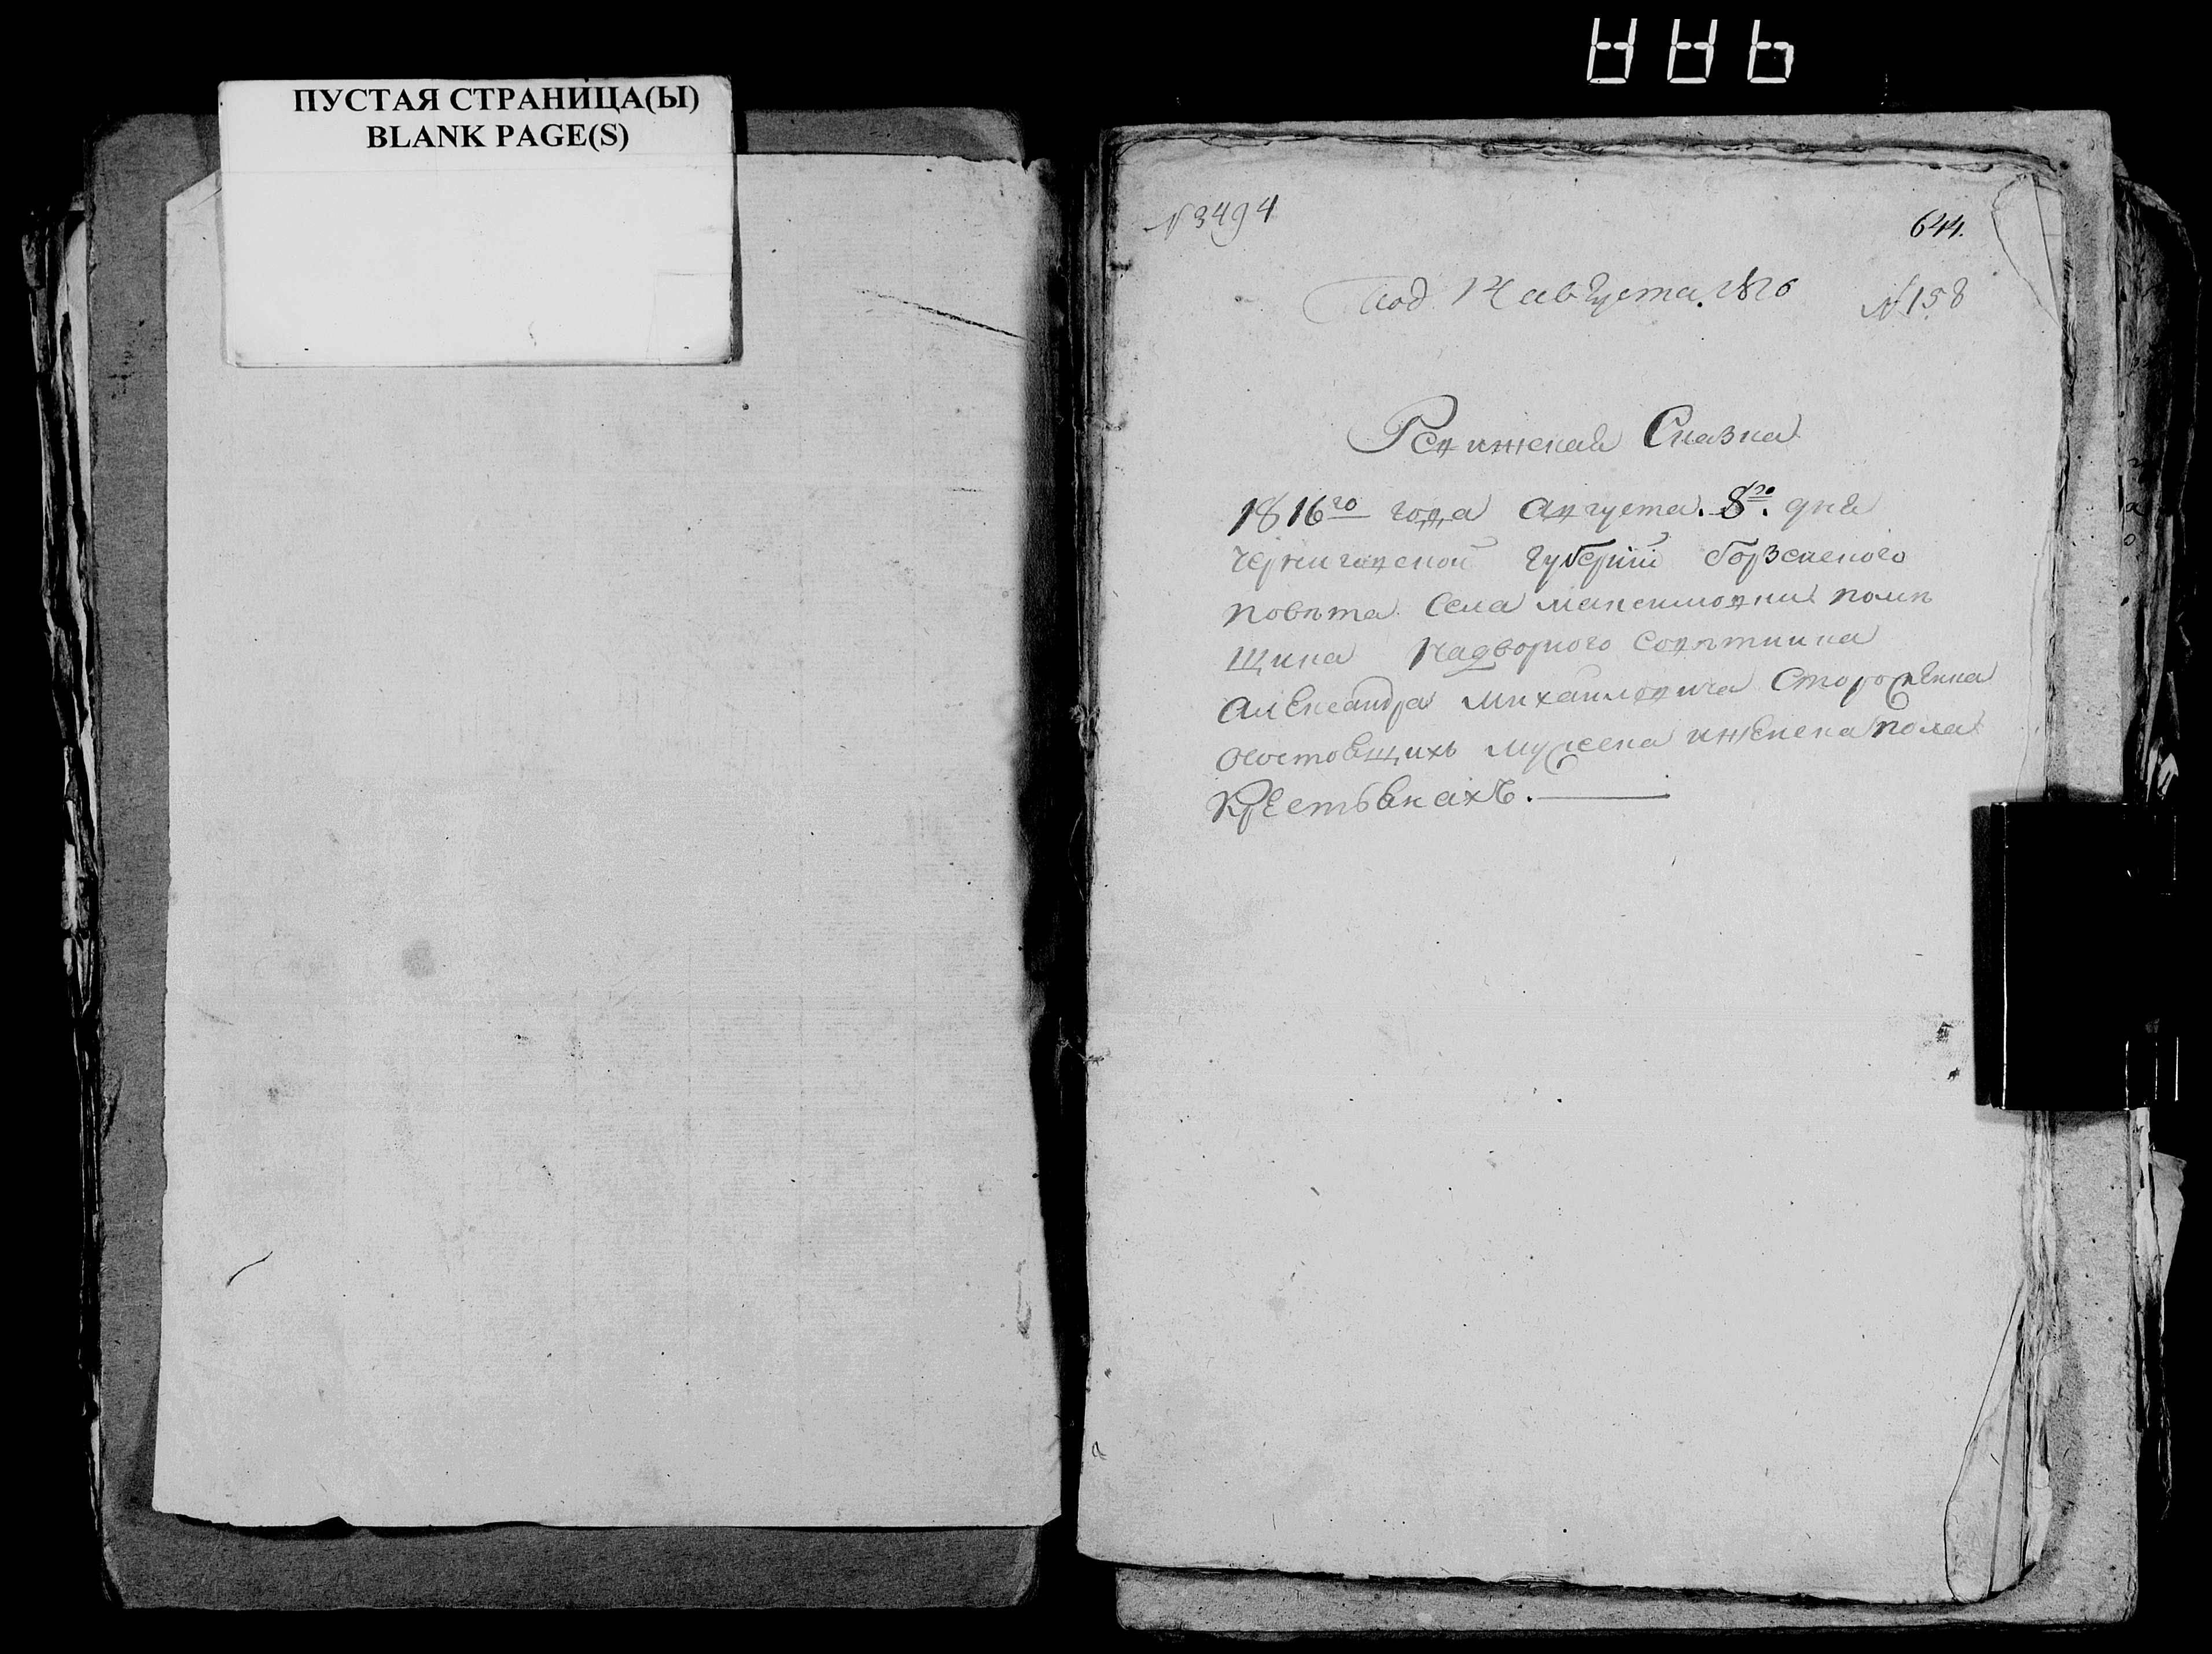 ПУСТАЯ СТРАНИЦА(Ы)
BLANK PAGE(S)
N 3494
644.
Под 14 августа 1816
N 158
Ревижская Сказка
1816го года Августа. 8го. дня
Черниговской Губернии борзенского
повѣта Села максимовки помѣ
щика Надворного Советника
Александра Михайловича Стороженка
осостоящихъ мужеска иженска пола
Крестьянахъ.